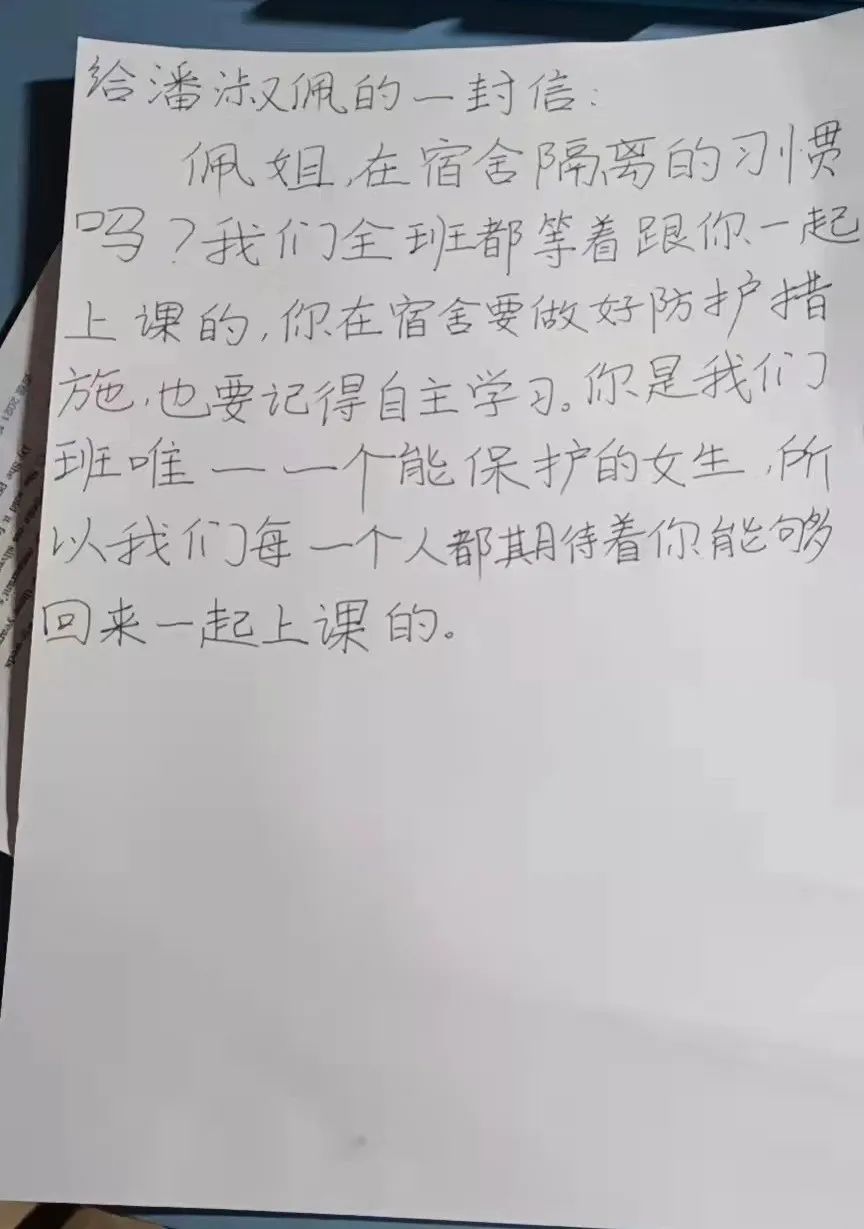 给潘淑佩的一封信:
佩姐,在宿舍隔离的习惯
吗?我们全班都等着跟你一起
上课的,你在宿舍要做好防护措
施,也要记得自主学习。你是我们
班唯一一个能保护的女生,所
以我们每一个人都期待着你能够
回来一起上课的。